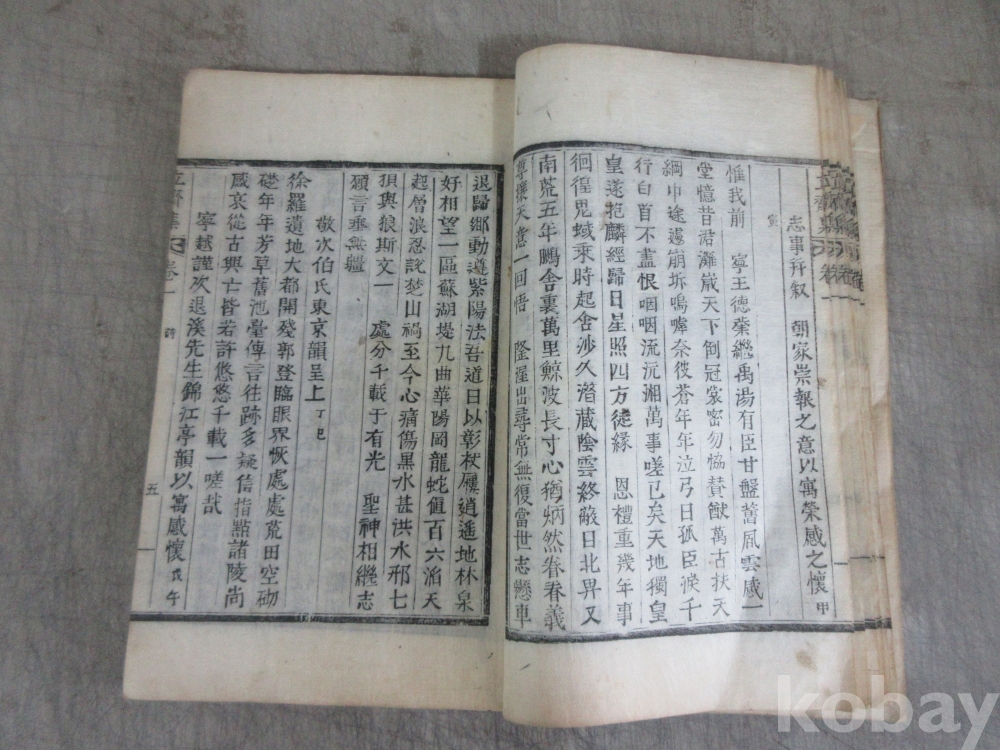 志事幷叙　朝家崇報之意以寓榮感之懷甲
寅
惟我前　寧王德業繼禹湯有臣甘盤舊風雲感一
堂憶昔涒灘歲天下倒冠裳密勿協贊猷萬古扶天
綱中途遽崩坼嗚嘑奈彼蒼年年泣弓日孤臣淚千
行白首不盡恨咽咽流沅湘萬事嗟已矣天地獨皇
皇遂抱麟經歸日星照四方徒緣　恩禮重幾年事
徊徨鬼蜮乘時起含沙久潛藏陰雲終蔽日北畀又
南荒五年鵩舍裏萬里鯨波長寸心猶炳然眷眷義
尊攘天意一回悟　隆渥出尋常無復當世志戀車
退歸鄉動遵紫陽法吾道日以彰杖屨逍遙地林泉
好相望一區蘇湖堤九曲華陽岡龍蛇值百六滔天
起層浪忍說楚山禍至今心痛傷黑水甚洪水邪七
損與狼斯文一　處分千載于有光　聖神相繼志
願言垂無疆
敬次伯氏東京韻呈上丁巳
徐羅遺地大都開殘郭登臨眼界恢處處荒田空砌
礎年年芳草舊池臺傳言往跡多疑信指點諸陵尚
感哀從古興亡皆若許悠悠千載一嗟哉
寧越謹次退溪先生錦江亭韻以寓感懷戊午
立齋集　卷一　詩　五
kobay